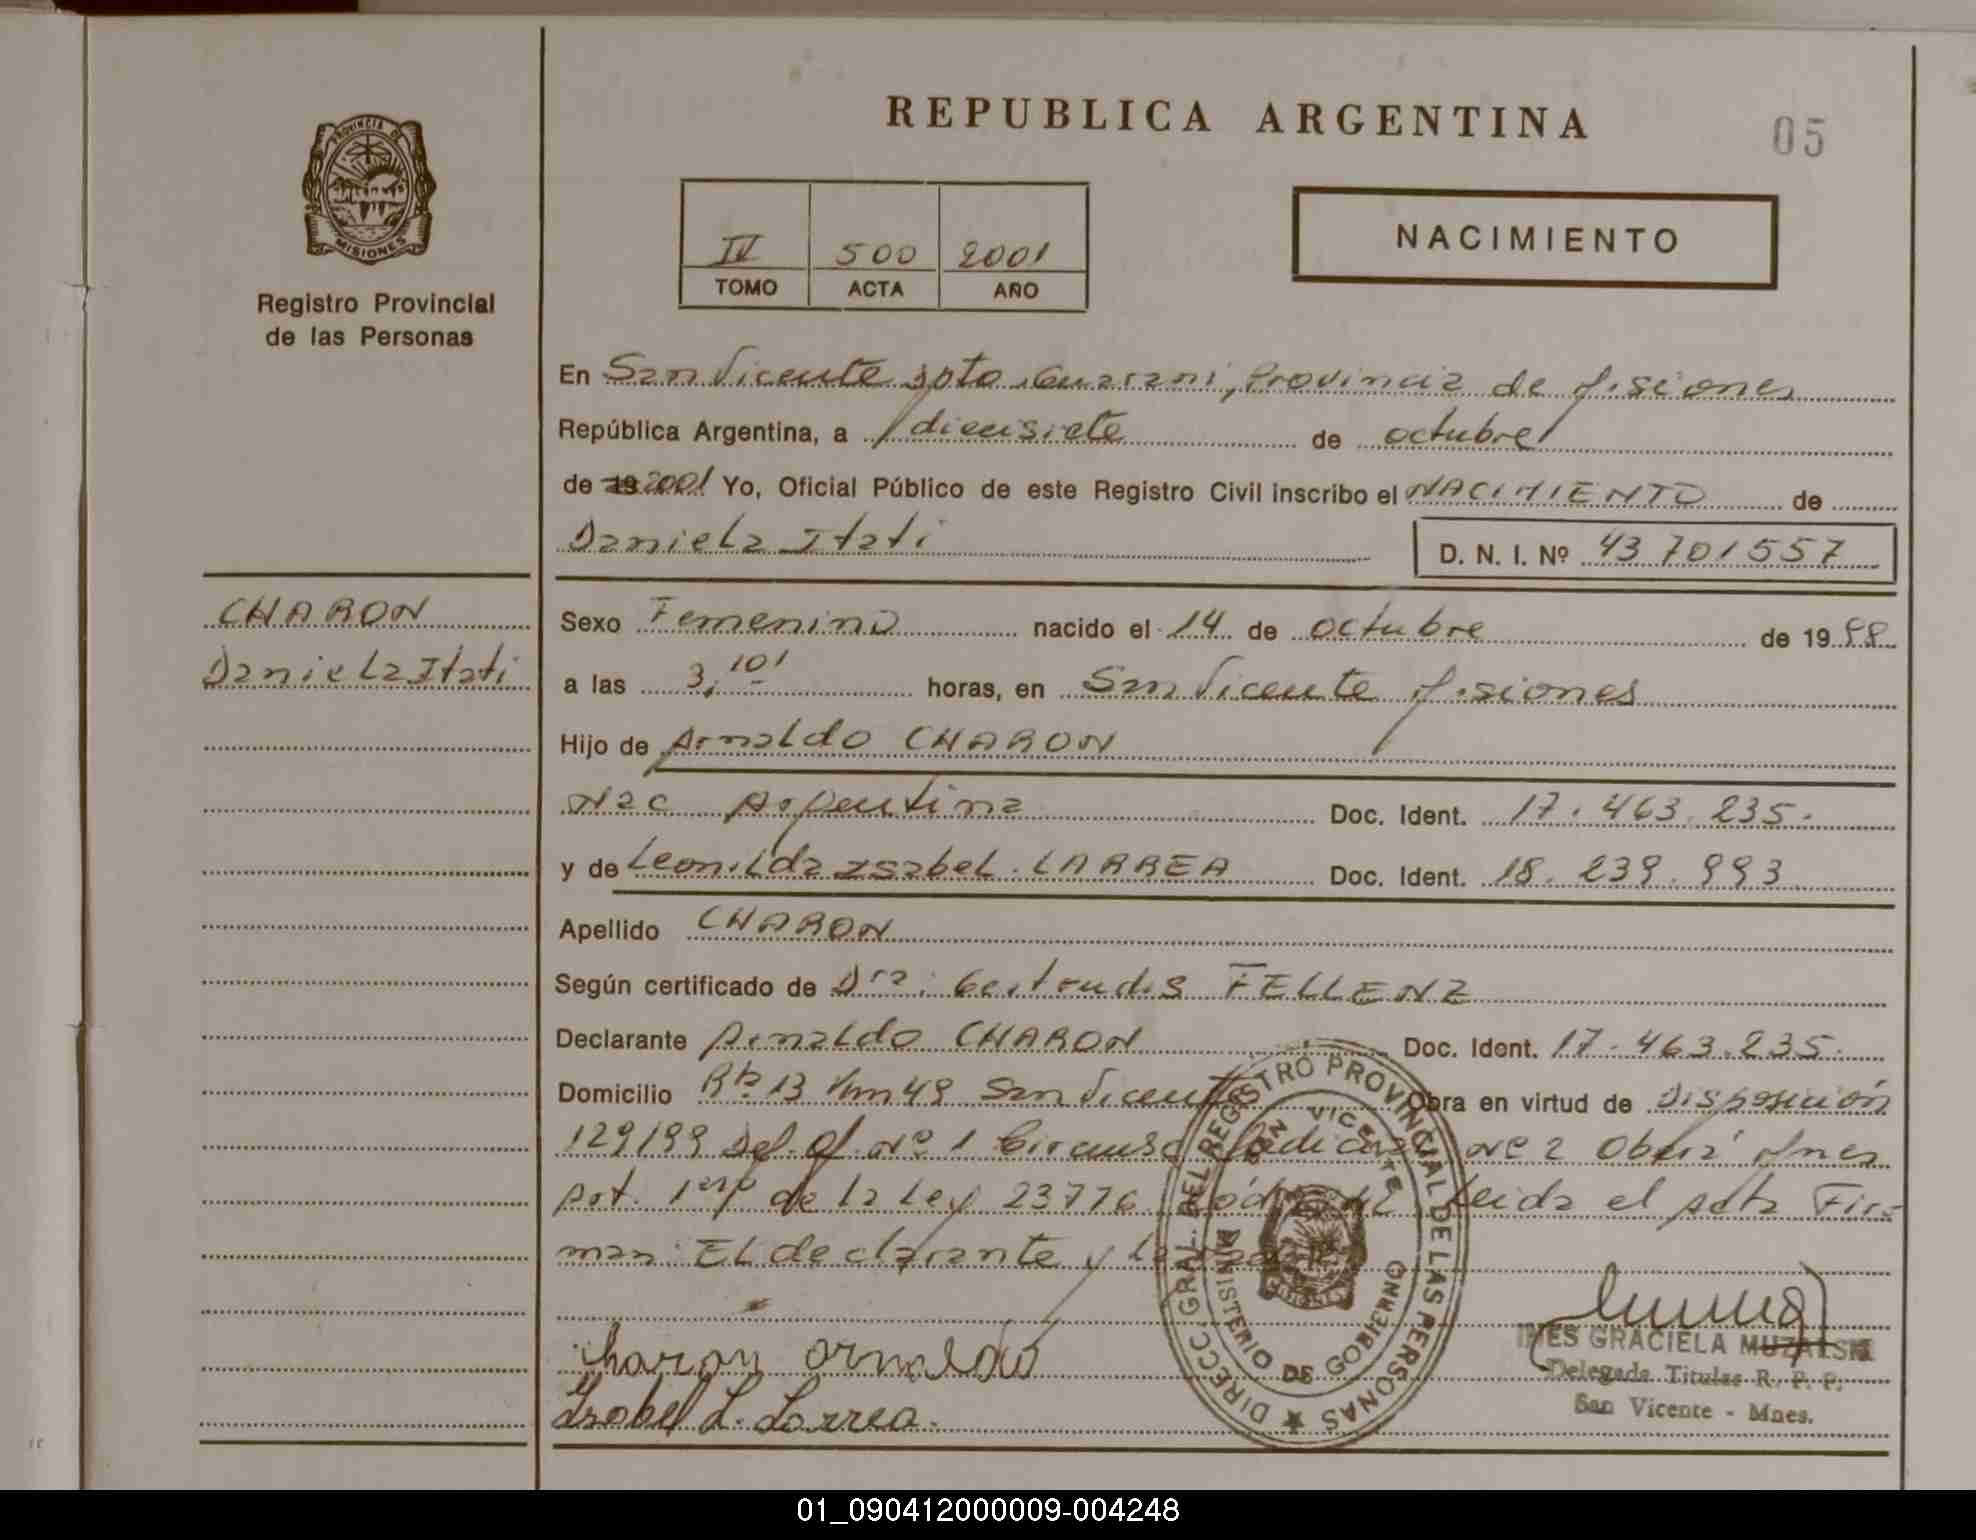 REPUBLICA ARGENTINA
05
PROVINCIA DE
MISIONES
Registro Provincial
de las Personas
IV 500 2001
TOMO ACTA AÑO
NACIMIENTO
En San Vicente Dpto Guarani, Provincia de Misiones
República Argentina, a diecisiete de octubre
de 19 2001 Yo, Oficial Público de este Registro Civil inscribo el NACIMIENTO de
Daniela Itati
D. N. I. Nº 43701557
CHARON
Daniela Itati
Sexo Femenino nacido el 14 de octubre de 19
a las 3,10' horas, en San Vicente Misiones
Hijo de Arnaldo CHARON
Nac Argentina Doc. Ident. 17.463.235.
y de Leonilda Isabel LARREA Doc. Ident. 18.239.993
Apellido CHARON
Según certificado de Dra: Gertrudis FELLENZ
Declarante Arnaldo CHARON Doc. Ident. 17.463.235.
Domicilio Rta 13 Km 49 San Vicente Obra en virtud de Disposición
129/99 Def. Of. Nº 1 Circunsc Judicial Nº 2 Oberá Mnes
Art. 1º de la Ley 23776 Leida el acta Fir=
man: El declarante y la
Charon Arnaldo
Isabel L. Larrea.
DIRECC. GRAL. DEL REGISTRO PROVINCIAL DE LAS PERSONAS
SAN VICENTE
MINISTERIO DE GOBIERNO
MISIONES
INES GRACIELA MUZALSKI
Delegada Titular R. P. P.
San Vicente - Mnes.
01_090412000009-004248